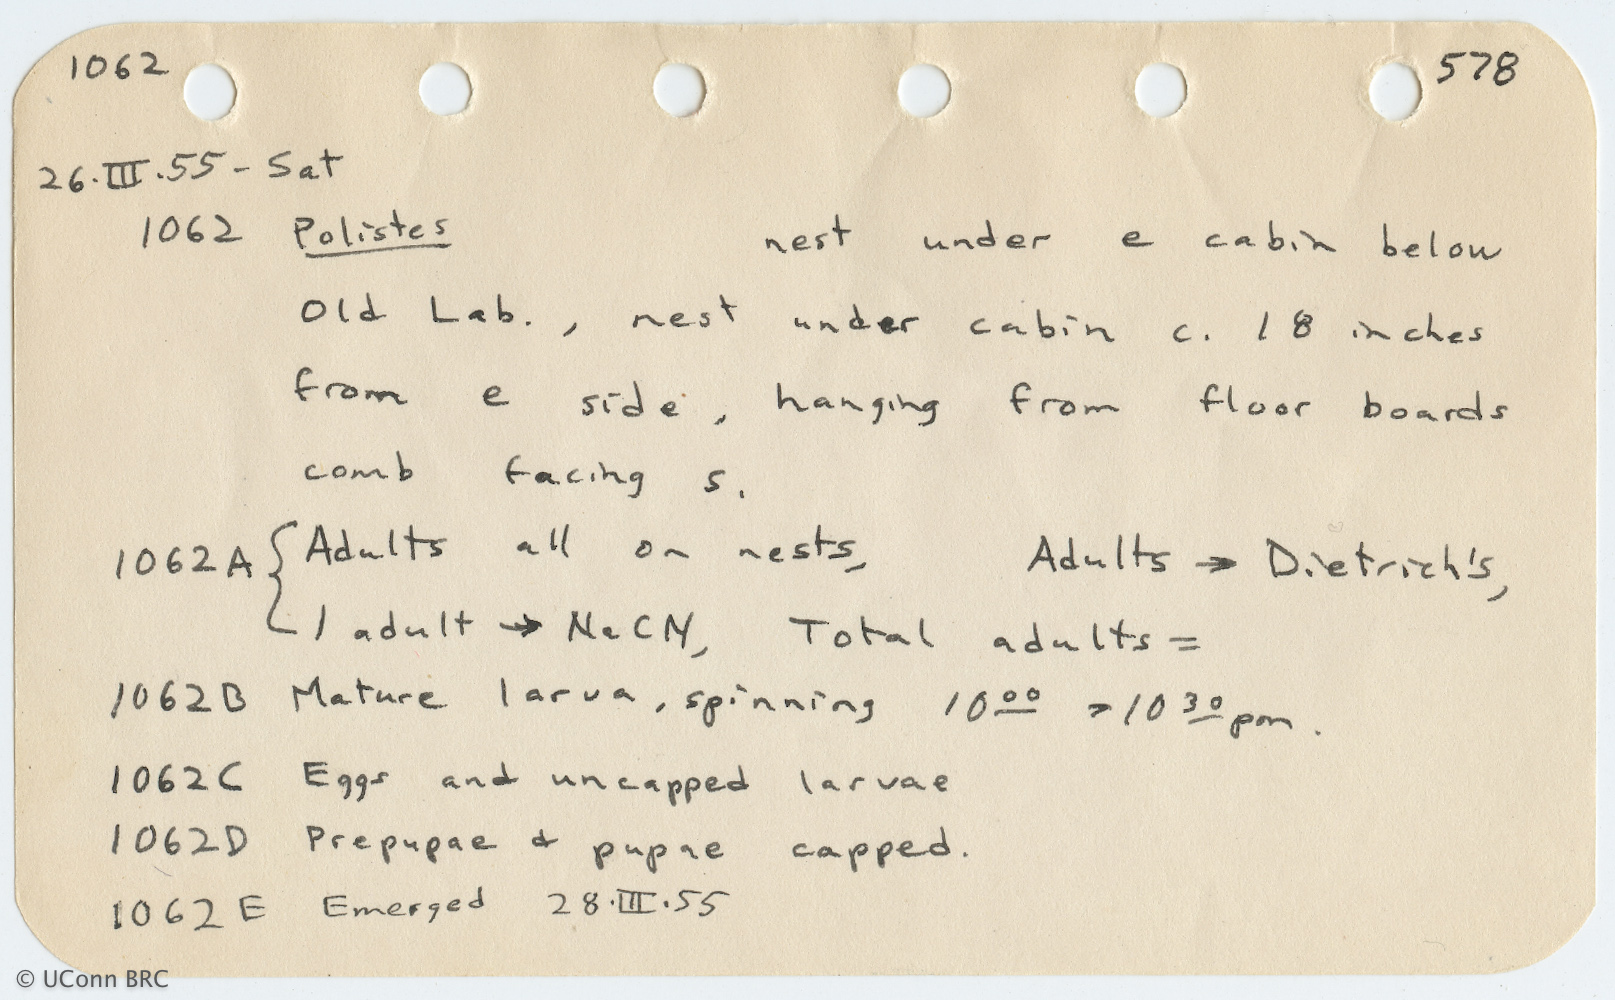 1062 578
26.III.55 - Sat
1062 Polistes nest under e cabin below
Old Lab., nest under cabin c. 18 inches
from e side, hanging from floor boards
comb facing s.
1062A { Adults all on nests, Adults → Dietrich's,
1 adult → NaCN, Total adults =
1062B Mature larva, spinning 10 00 > 10 30 pm.
1062C Eggs and uncapped larvae
1062D Prepupae & pupae capped.
1062E Emerged 28.III.55
© UConn BRC